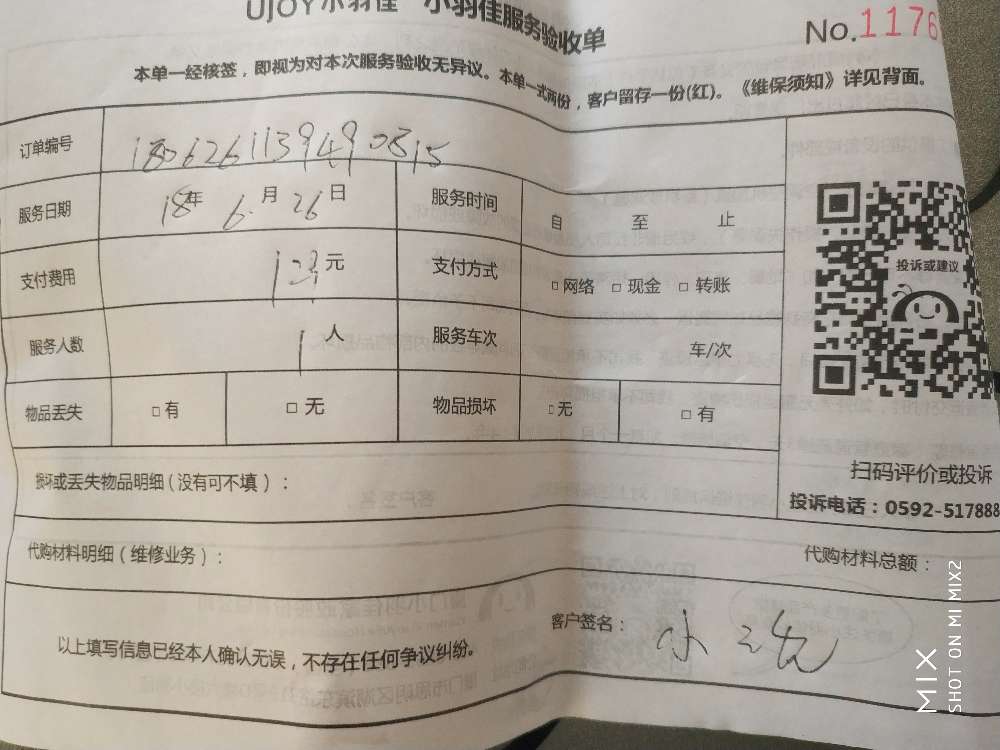 UJOY小羽佳 小羽佳服务验收单
No.1176
本单一经核签，即视为对本次服务验收无异议。本单一式两份，客户留存一份(红)。《维保须知》详见背面。
订单编号 1806261139490315
服务日期 18年 6.月 26日 服务时间 自 至 止
支付费用 123元 支付方式 □网络 □现金 □转账
服务人数 1人 服务车次 车/次
物品丢失 □有 □无 物品损坏 □无 □有
投诉或建议
扫码评价或投诉
投诉电话：0592-517888
损坏或丢失物品明细（没有可不填）：
代购材料明细（维修业务）： 代购材料总额：
以上填写信息已经本人确认无误，不存在任何争议纠纷。 客户签名：
MIX
SHOT ON MI MIX2